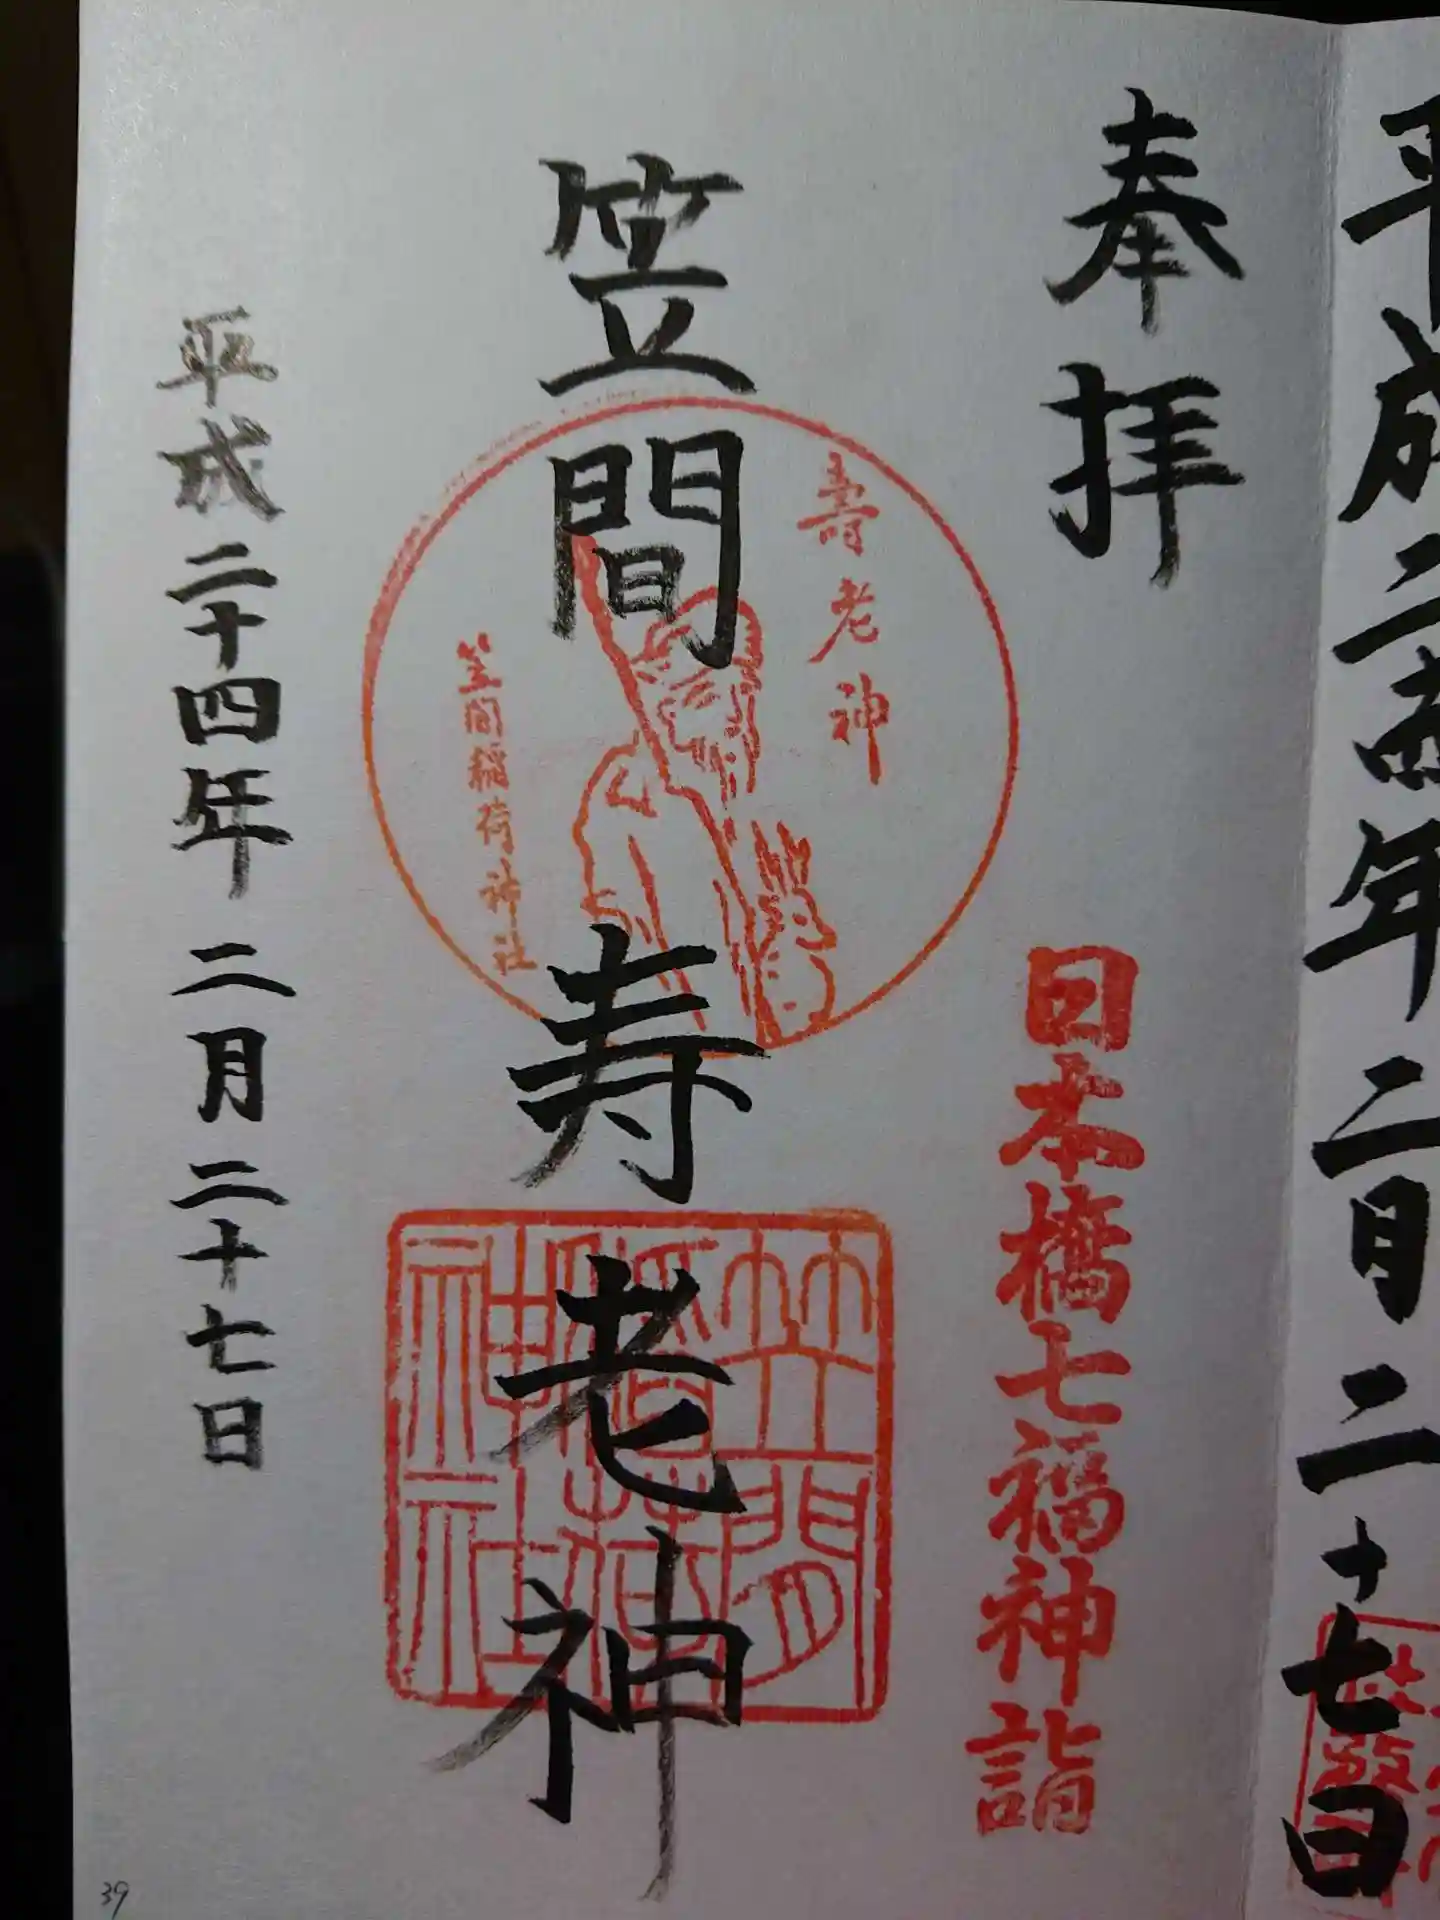 平成二十四年二月二十七日
奉拝
日本橋七福神詣
壽老神
笠間稲荷神社
笠間寿老神
笠間稲荷神社
平成二十四年二月二十七日
39